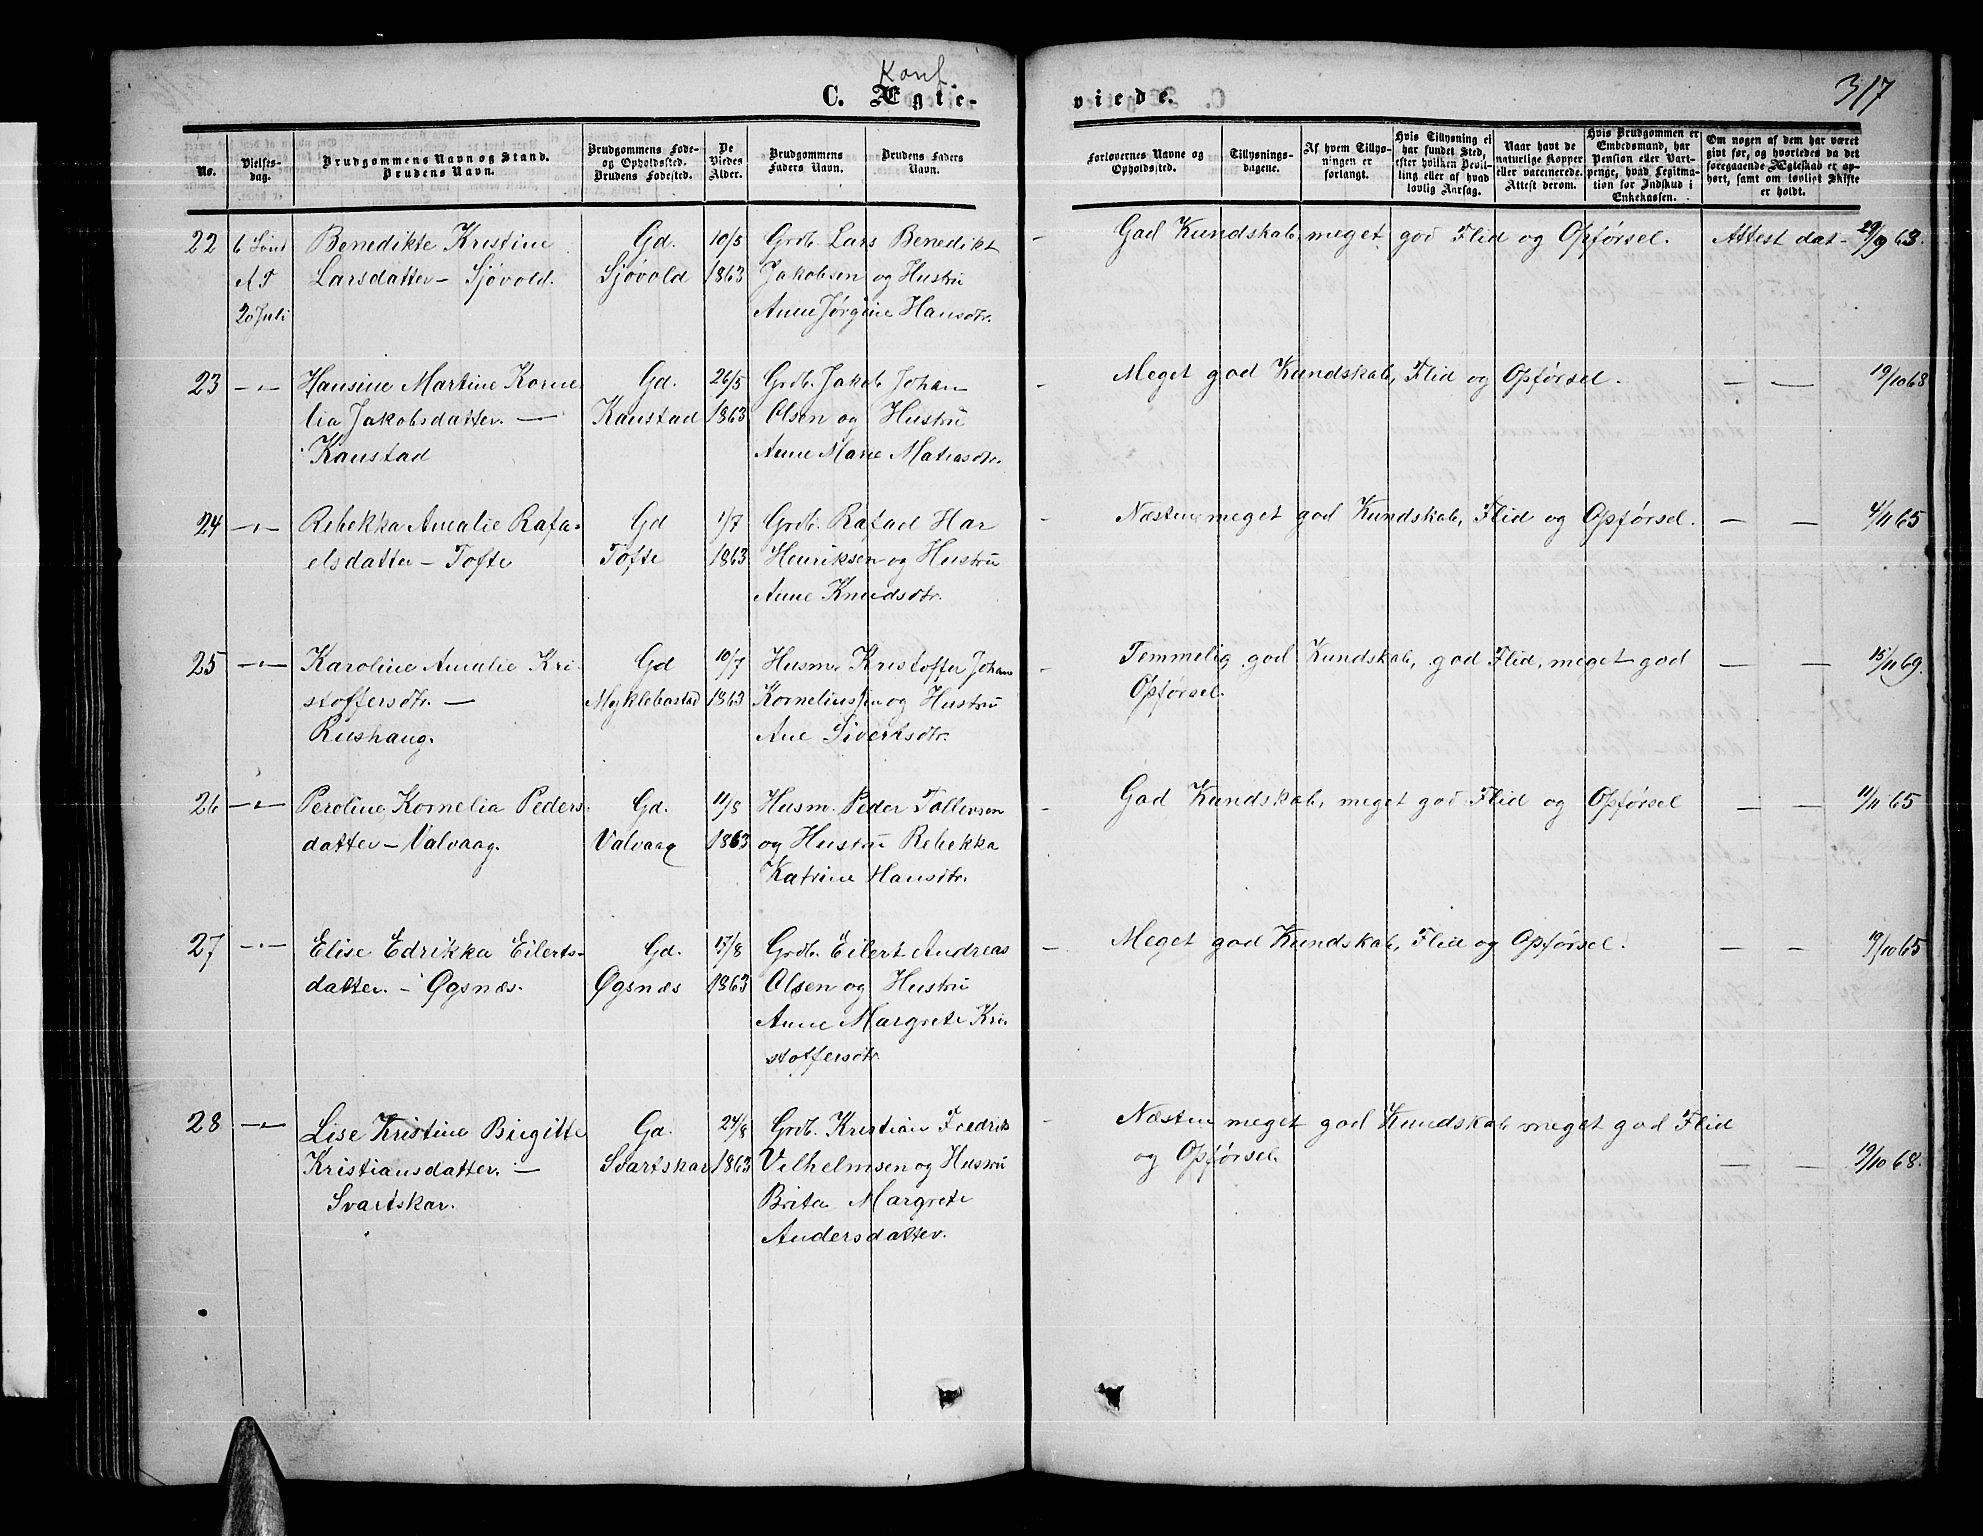 Konf.
C. Ægte-
viede.
317
No.
Vielses-
dag.
Brudgommens Navn og Stand.
Brudens Navn.
Brudgommens Føde-
og Opholdssted.
Brudens Fødested.
De
Viedes
Alder.
Brudgommens
Faders Navn.
Brudens Faders
Navn.
Forlovernes Navne og
Opholdssted.
Tillysnings-
dagene.
Af hvem Tillys-
ningen er
forlangt.
Hvis Tillysning ei
har fundet Sted,
efter hvilken Bevil-
ling eller af hvad
lovlig Aarsag.
Naar havt de
naturlige Kopper
eller vaccinerede.
Attest derom.
Hvis Brudgommen er
Embedsmand, har
Pension eller Vart-
penge, hvad Legitma-
tion for Indskud i
Enkekassen.
Om nogen af dem har været
givt før, og hvorledes da det
foregaaende Ægteskab er op-
hørt, samt om lovligt Skifte
er holdt.
22
6 Sønd
A T
20 Juli
Benedikte Kristine
Larsdatter – Sjøvold.
Gd.
Sjøvold
10/5
1863
Grdb. Lars Benedikt
Jakobsen og Hustru
Anne Jørgine Hansdtr.
God Kundskab, meget god Flid og Opførsel.
Attest dat. 29/9 63.
23
–"–
Hansine Martine Korne
lia Jakobsdatter. –
Kanstad
Gd.
Kanstad
26/5
1863
Grdb. Jakob Johan
Olsen og Hustru
Anne Marie Matiasdtr.
Meget god Kundskab, Flid og Opførsel.
– – 19/10 68
24
–"–
Rebekka Amalie Rafa-
elsdatter – Tofte
Gd
Tofte
1/7
1863
Grdb. Rafael Har
Henriksen og Hustru
Anne Knudsdtr.
Næsten meget god Kundskab, Flid og Opførsel.
– – 4/11 65
25
–"–
Karoline Amalie Kri-
stoffersdtr. –
Rushaug.
Gd
Myklebostad
10/7
1863
Husm. Kristoffer Johan
Korneliussen og Hustru
Ane Sivertsdtr.
Temmelig god Kundskab, god Flid, meget god
Opførsel.
– – 15/11 69.
26
–"–
Peroline Kornelia Peders-
datter – Valvaag.
Gd.
Valvaag
11/8
1863
Husm. Peder Tollevsen
og Hustru Rebekka
Katrine Hansdtr.
God Kundskab, meget god Flid og Opførsel
– – 11/11 65
27
–"–
Elise Edrikka Eilerts-
datter. – Øgsnæs.
Gd.
Øgsnæs
15/8
1863
Grdb. Eilert Andreas
Olsen og Hustru
Anne Margrete Kri-
stoffersdtr.
Meget god Kundskab, Flid og Opførsel.
– – 19/10 65
28
–"–
Lise Kristine Birgitte
Kristiansdatter. –
Svartskar.
Gd.
Svartskar
24/8
1863
Grdb. Kristian Fredrik
Vilhelmsen og Hustru
Brita Margrete
Andersdatter.
Næsten meget god Kundskab meget god Flid
og Opførsel.
– – 19/10 68.